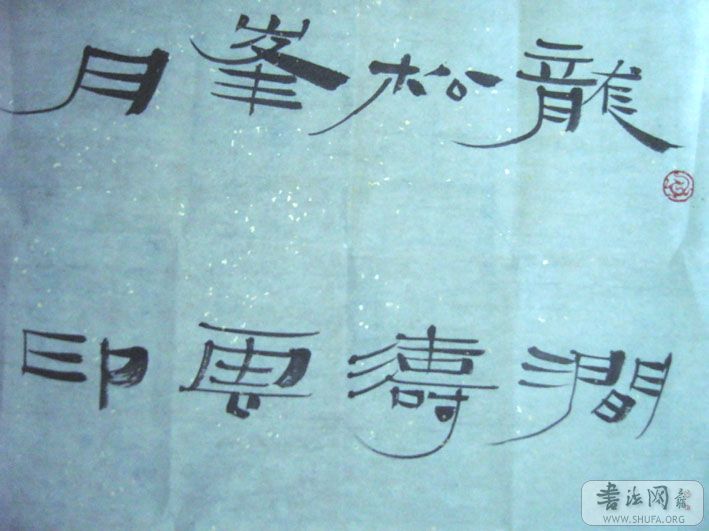 龍澗
松濤
峯雲
月印
書法网
WWW.SHUFA.ORG